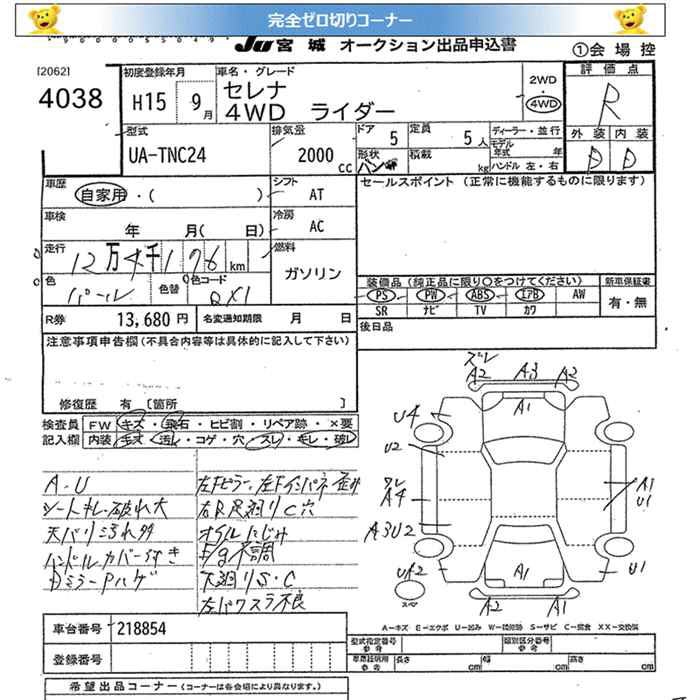 完全ゼロ切りコーナー
JU宮城 オークション出品申込書
①会場控
[2062]
4038
初度登録年月
H15 9月
車名・グレード
セレナ
4WD ライダー
2WD
・
4WD
評価点
R
外装 内装
D D
型式
UA-TNC24
排気量
2000 cc
ドア 5
定員 5人
ディーラー・並行
モデル年式 年
形状 バン
積載 kg
ハンドル 左・右
車歴
自家用・( )
シフト
AT
セールスポイント (正常に機能するものに限ります)
車検
年 月( 日)
冷房
AC
走行
12万4千176km
燃料
ガソリン
色
パール
色替
色コード
QX1
装備品 (純正品に限り○をつけてください)
新車保証書
PS PW ABS エアB AW
SR ナビ TV カワ
有・無
R券 13,680円
名変通知期限 月 日
後日品
注意事項申告欄(不具合内容等は具体的に記入して下さい)
修復歴 有 [箇所 ]
検査員記入欄
FW キズ・飛石・ヒビ割・リペア跡・×要
内装 キズ・汚レ・コゲ・穴・スレ・キレ・破レ
A-U
シートキレ・破れ大
天バリ汚れ多
ハンドルカバーすりき
Dミラーアハゲ
左Fピラー、左Fインパネ歪み
左R足廻りC穴
オイルにじみ
E/g不調
下廻りS・C
左パワスラ不良
ズレ
A2 A3 A2
A1
U4
U2
ズレ
A4
A3U2
UA2
A1
U1
U1
A1
A2 A1
スペア
A-キズ E-エクボ U-凹み W-補修跡 S-サビ C-腐食 XX-交換済
車台番号 218854
登録番号
型式指定番号 参考
類別区分番号 参考
車庫証明用 参考
長さ 幅 高さ
cm cm cm
希望出品コーナー (コーナーは各会場により異なります。)